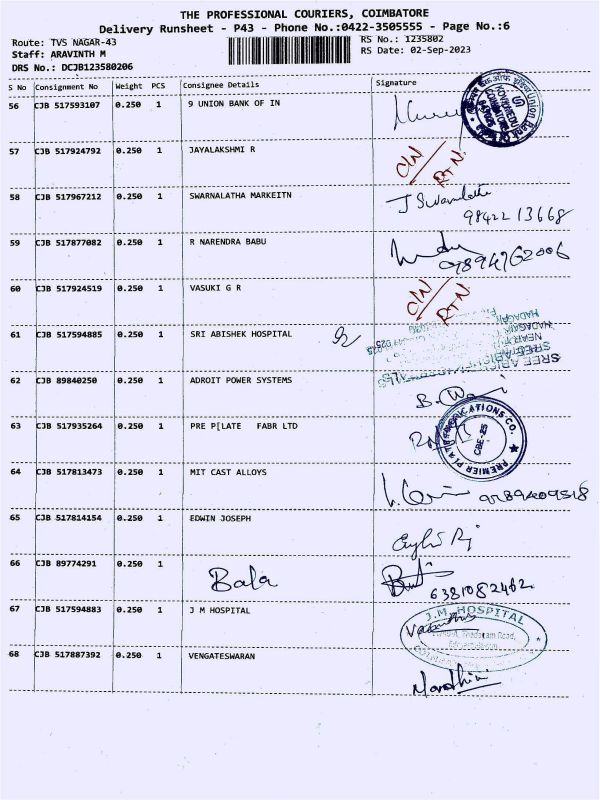 THE PROFESSIONAL COURIERS, COIMBATORE
Delivery Runsheet - P43 - Phone No.:0422-3505555 - Page No.:6
Route: TVS NAGAR-43
RS No.: 1235802
Staff: ARAVINTH M
RS Date: 02-Sep-2023
DRS No.: DCJB123580206
S No Consignment No Weight PCS Consignee Details Signature
56 CJB 517593107 0.250 1 9 UNION BANK OF IN
Union Bank
57 CJB 517924792 0.250 1 JAYALAKSHMI R
C/N / RTN
58 CJB 517967212 0.250 1 SWARNALATHA MARKEITN
J Swarnalatha
9842213668
59 CJB 517877082 0.250 1 R NARENDRA BABU
60 CJB 517924519 0.250 1 VASUKI G R
C/N / RTN
61 CJB 517594885 0.250 1 SRI ABISHEK HOSPITAL
62 CJB 89840250 0.250 1 ADROIT POWER SYSTEMS
63 CJB 517935264 0.250 1 PRE P[LATE FABR LTD
PREMIER PLATE FABRICATIONS CO.
CBE-25
64 CJB 517813473 0.250 1 MIT CAST ALLOYS
65 CJB 517814154 0.250 1 EDWIN JOSEPH
66 CJB 89774291 0.250 1 Bala
6381082462
67 CJB 517594883 0.250 1 J M HOSPITAL
J.M. HOSPITAL
68 CJB 517887392 0.250 1 VENGATESWARAN